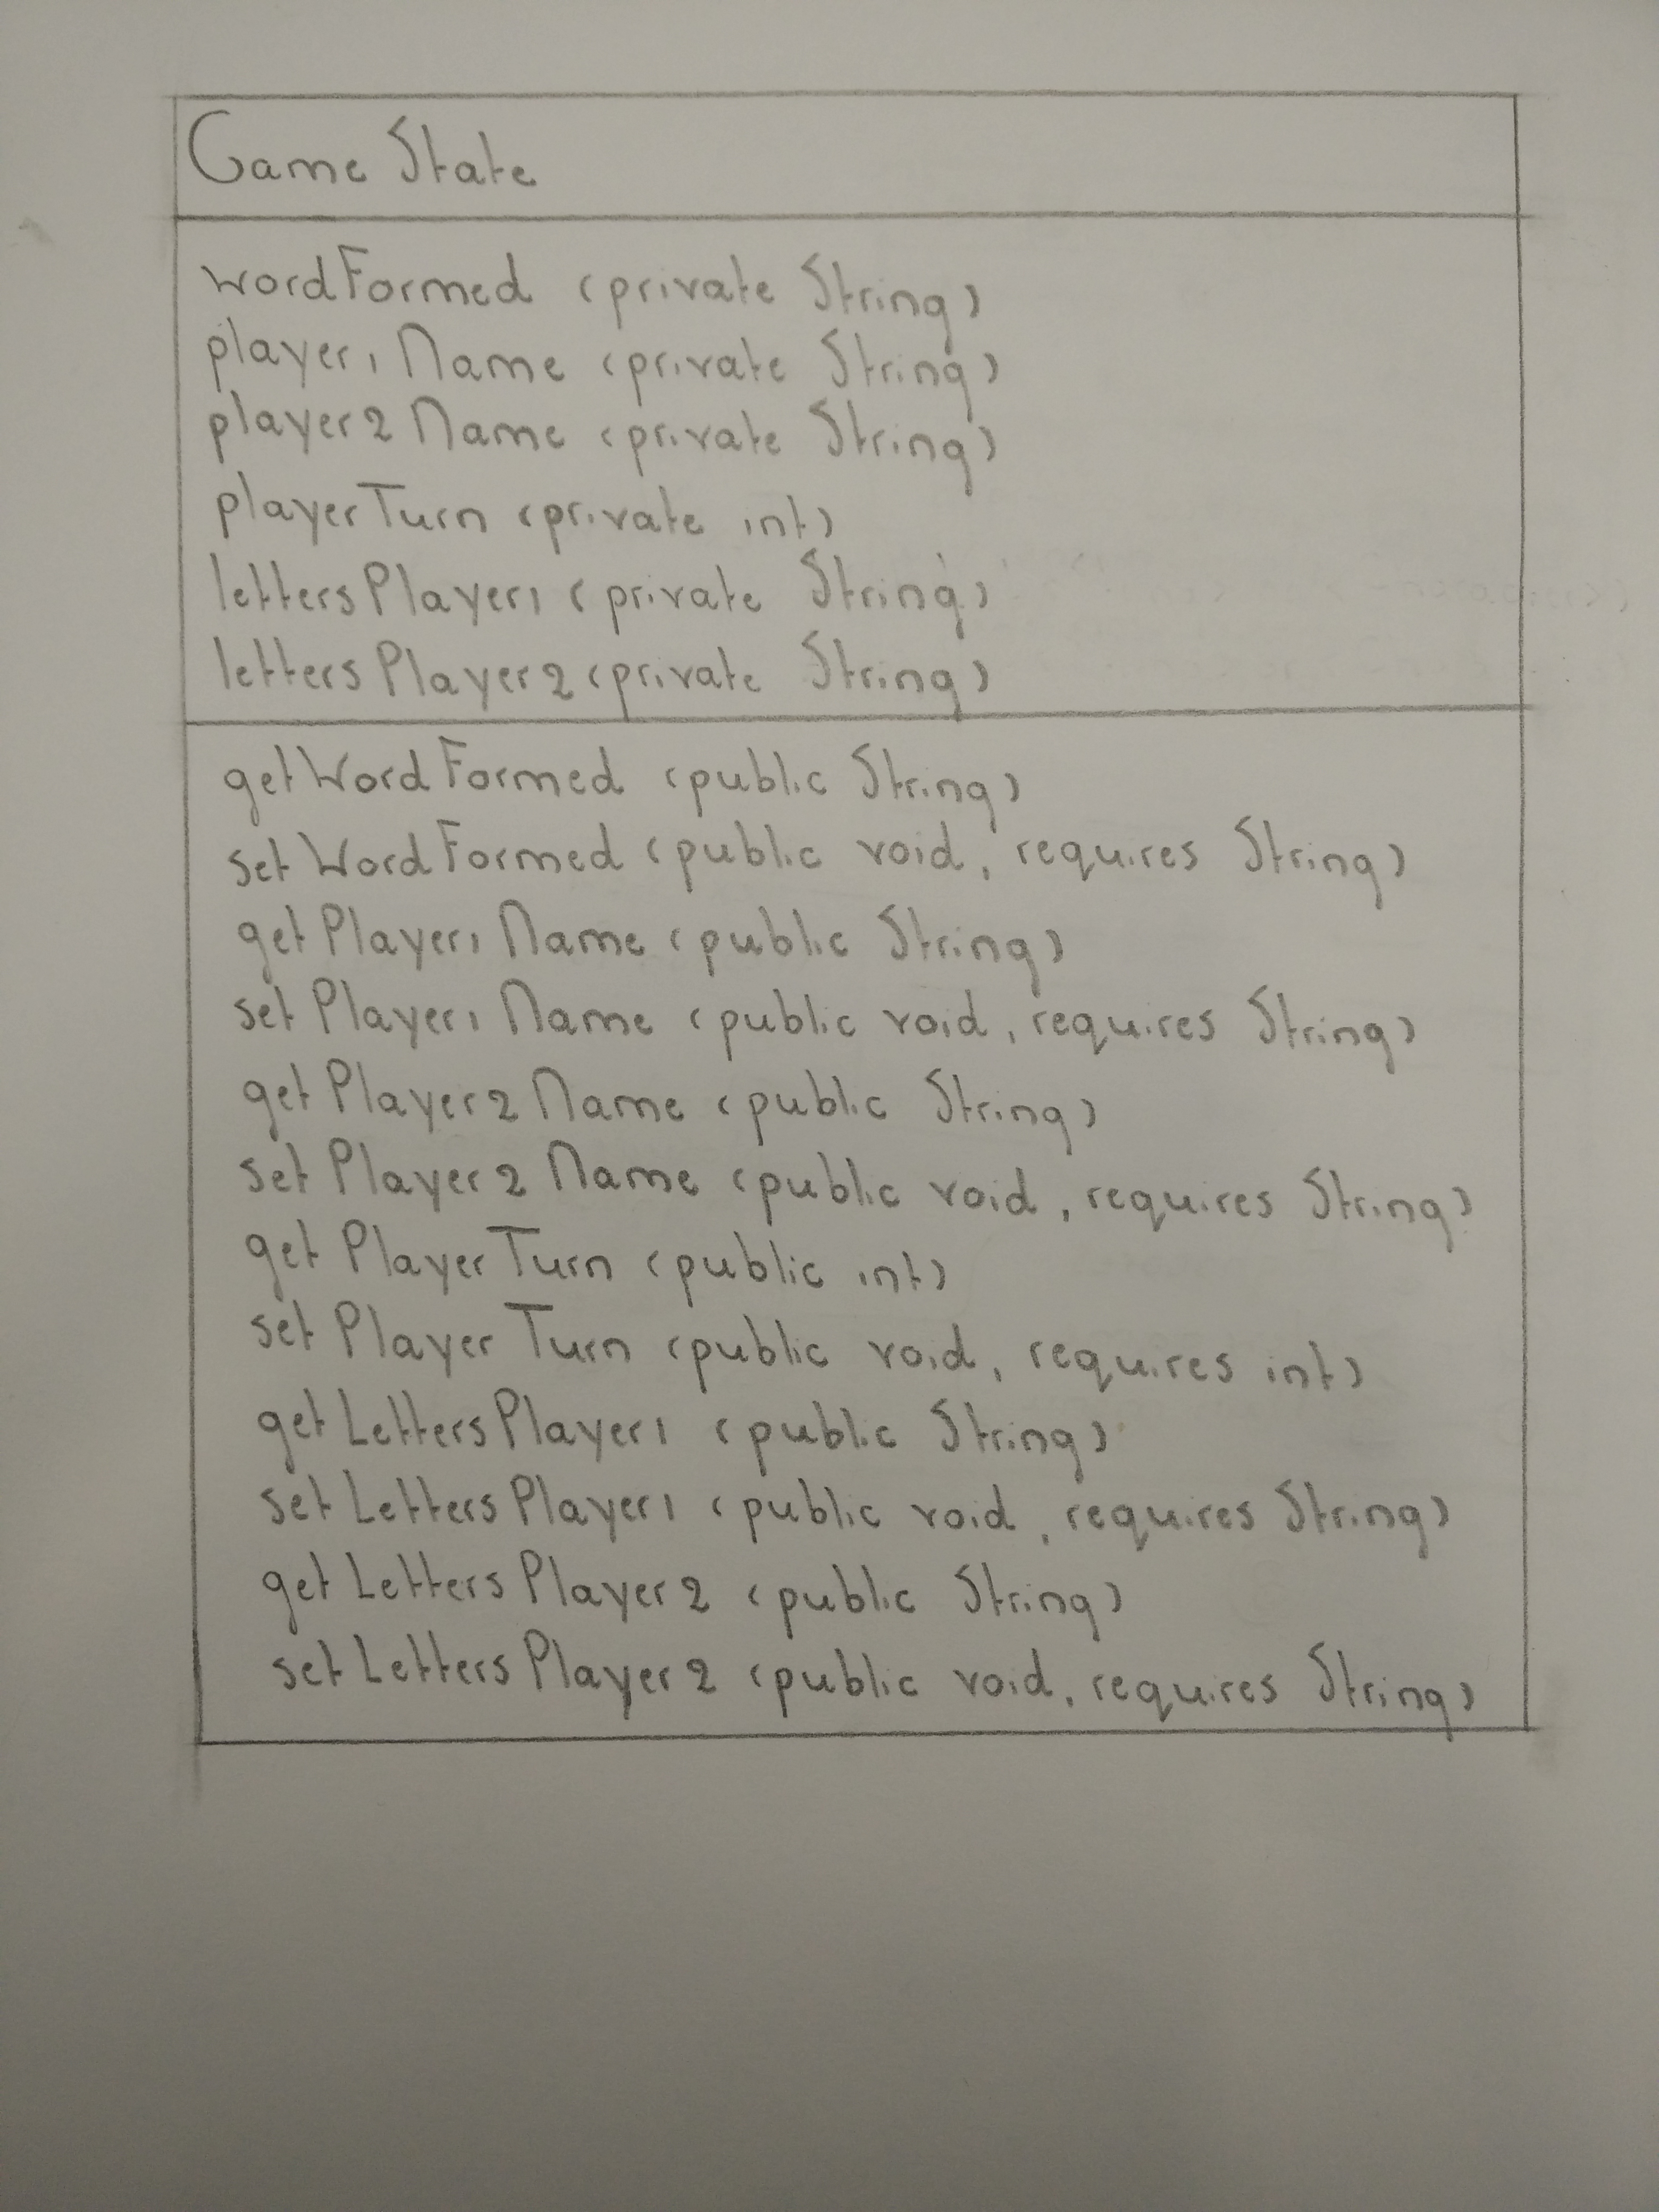 Game State
wordFormed (private String)
player1Name (private String)
player2Name (private String)
playerTurn (private int)
lettersPlayer1 (private String)
lettersPlayer2 (private String)
getWordFormed (public String)
setWordFormed (public void, requires String)
getPlayer1Name (public String)
setPlayer1Name (public void, requires String)
getPlayer2Name (public String)
setPlayer2Name (public void, requires String)
getPlayerTurn (public int)
setPlayerTurn (public void, requires int)
getLettersPlayer1 (public String)
setLettersPlayer1 (public void, requires String)
getLettersPlayer2 (public String)
setLettersPlayer2 (public void, requires String)